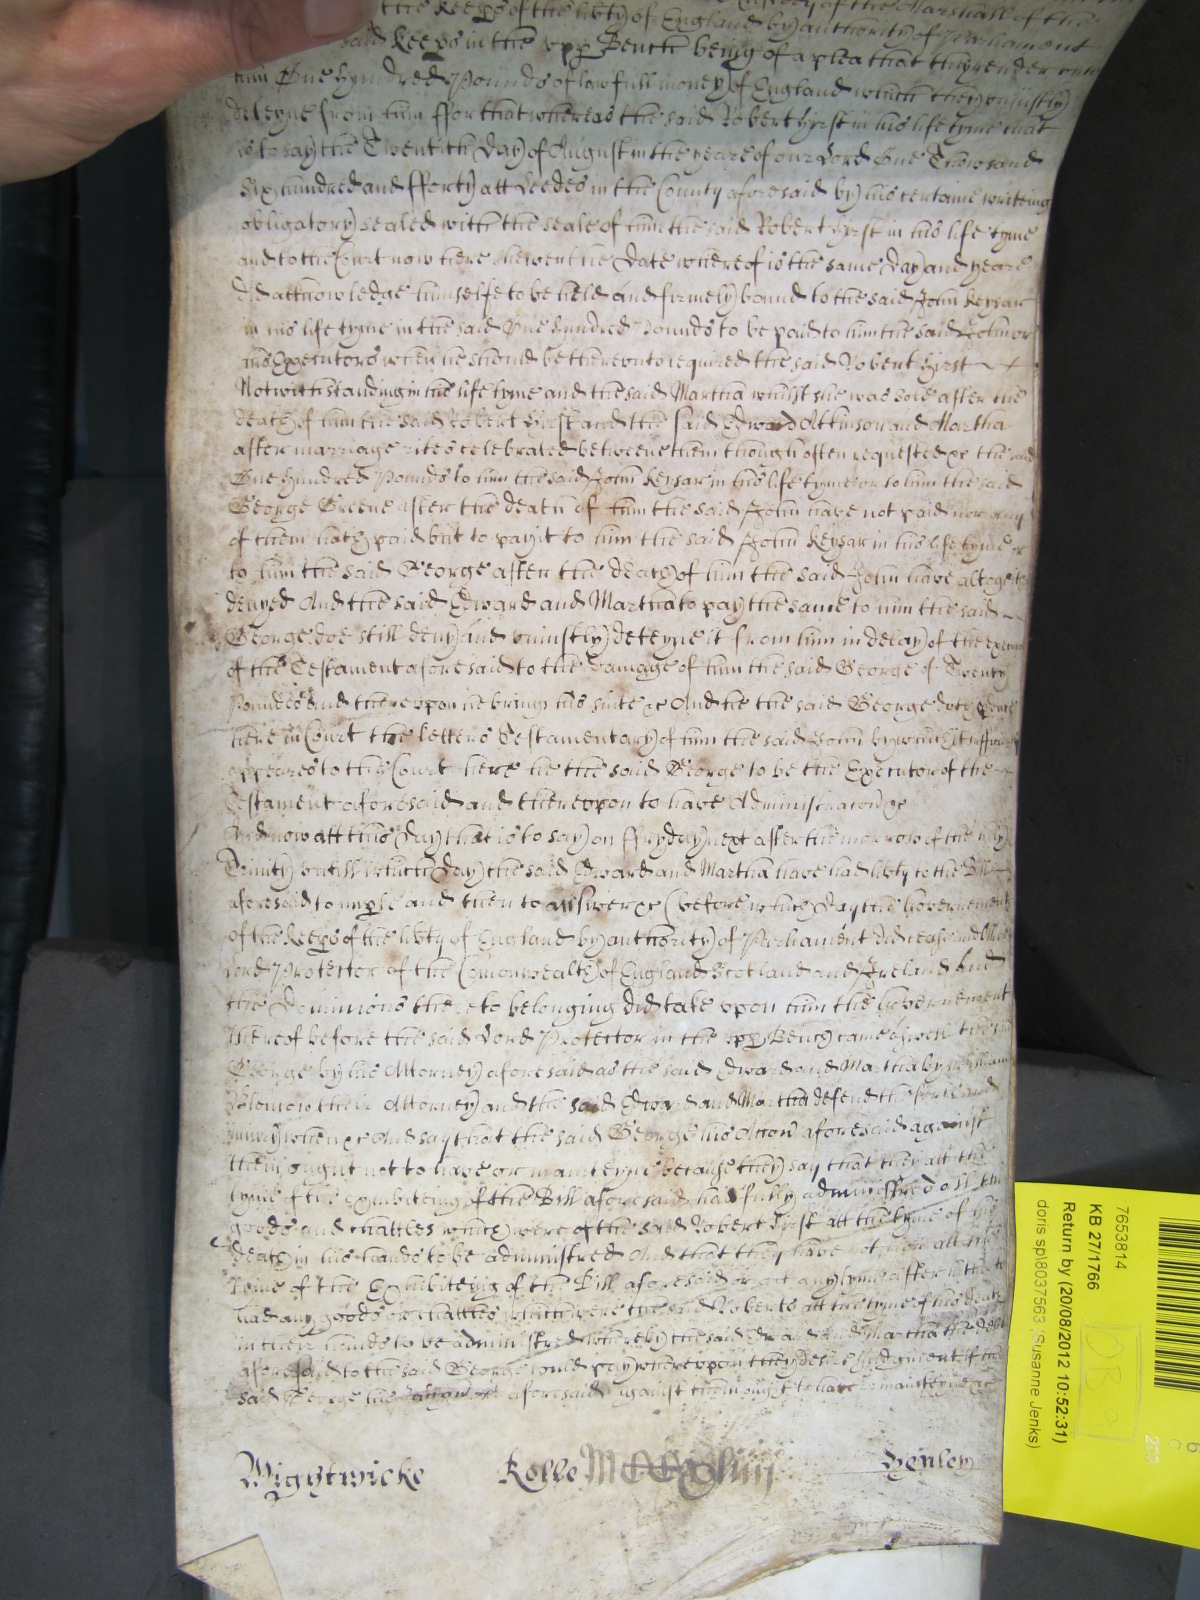 Custody of the Marshall of the
the Keeps of the libty of England by authority of Parliament
said Keeps in the upp Bench being of a plea that they render unto
him One hundred Pounds of lawfull money of England which they uniustly
deteyne from him ffor that whereas the said Robert Hyrst in his life tyme that
is to say the Twentith day of August in the yeare of our Lord One Thowsand
Six hundred and fforty att Leedes in the County aforesaid by his certaine writeing
obligatory sealed with the seale of him the said Robert Hyrst in his life tyme
and to the Court now here shewen the date whereof is the same day and yeare
did acknowledge himselfe to be held and firmely bound to the said John Keysar
in his life tyme in the said One hundred Pounds to be paid to him the said John or
his Executors when he should be thereunto required the said Robert Hyrst
Notwithstanding in his life tyme and the said Martha whilst she was sole after the
death of him the said Robert Hirst and the said Edward Atkinson and Martha
after marriage rites celebrated betweene them though often requested &c the said
One hundred Pounds to him the said John Keysar in his life tyme or to him the said
George Greene after the death of him the said John have not paid nor any
of them hath paid but to pay it to him the said John Keysar in his life tyme or
to him the said George after the death of him the said John have altogeth
denyed And the said Edward and Martha to pay the same to him the said
George doe still deny and uniustly deteyne it from him in delay of the
of the Testament aforesaid to the damage of him the said George of Twenty
Pounds And thereupon he brings his suite &c And he the said George doth
here in Court the letters Testamentary of him the said John by which it
appeares to the Court here he the said George to be the Executor of the
Testament aforesaid and thereupon to have Administracon &c
And now att this day that is to say on ffryday next after the morrow of the holy
Trinity untill which day the said Edward and Martha have had libty to the Bill
aforesaid to imple and then to answer &c (before which day the Governement
of the Keeps of the libty of England by authority of Parliament did cease and
Lord Protector of the Comonwealth of England Scotland and Ireland and
the Dominions thereto belonging did take upon him the Governement
thereof before the said Lord Protector in the upp Bench came aswell the
George by his Attorney aforesaid as the said Edward and Martha by
their Attorney and the said Edward and Martha defend the force and
iniury when &c And say that the said George his Accon aforesaid against
them ought not to have or mainteyne because they say that they att the
tyme of the exhibiteing of the Bill aforesaid had fully administred all the
goods and chattles which were of the said Robert Hirst att the tyme of his
death in his hands to be administred And that they have not nor att the
tyme of the Exhibiteing of the Bill aforesaid or att any tyme after
had any goods or chattles which were the said Roberts att the tyme of his death
in their hands to be administred whereby the said Edward and Martha the debt
aforesaid to the said George could pay whereupon they desire Iudgment if the
said George his accon aforesaid against them ought to have or mainteyne &c
Wightwicke Rolle Henley
7653814
KB 27/1766
Return by (20/08/2012 10:52:31)
doris sp8037563 (Susanne Jenks)